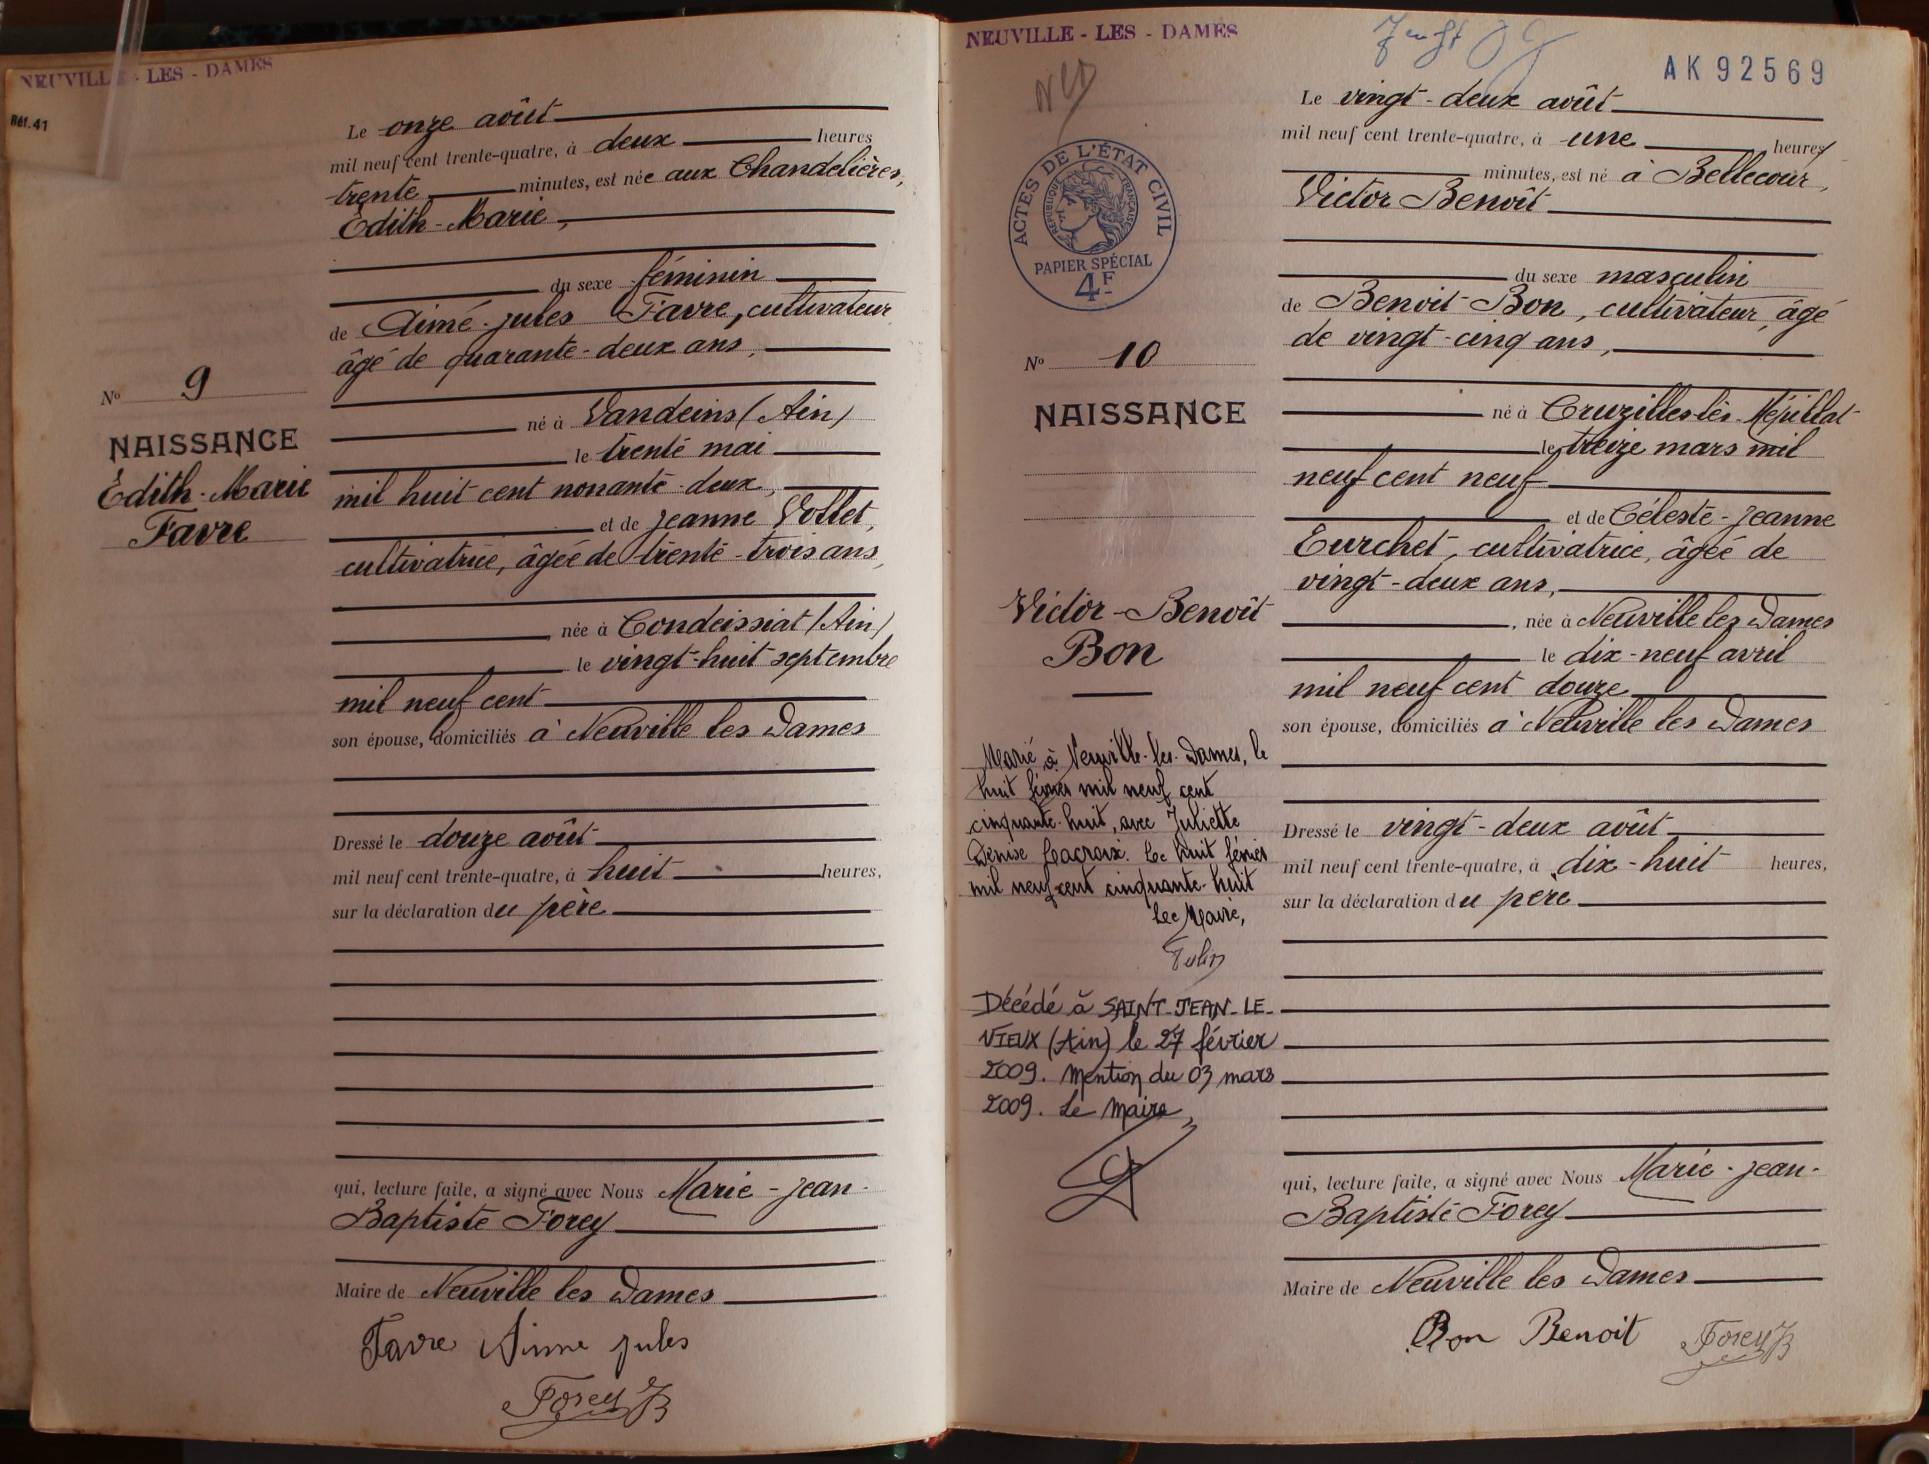 NEUVILLE - LES - DAMES
Réf. 41
Le onze août
mil neuf cent trente-quatre, à deux heures
trente minutes, est née aux Chandelières,
Edith-Marie,
du sexe féminin
de Aimé-Jules Favre, cultivateur
âgé de quarante-deux ans,
né à Vandeins (Ain)
le trente mai
mil huit cent nonante-deux,
et de Jeanne Vollet,
cultivatrice, âgée de trente-trois ans,
née à Condeissiat (Ain)
le vingt-huit septembre
mil neuf cent
son épouse, domiciliés à Neuville les Dames
Dressé le douze août
mil neuf cent trente-quatre, à huit heures,
sur la déclaration du père
qui, lecture faite, a signé avec Nous Marie-Jean-
Baptiste Forey
Maire de Neuville les Dames
Favre Aime jules
Forey JB
N° 9
NAISSANCE
Edith-Marie
Favre
NEUVILLE - LES - DAMES
NLD
AK 92569
ACTES DE L'ÉTAT CIVIL
RÉPUBLIQUE FRANÇAISE
PAPIER SPÉCIAL
4F
N° 10
NAISSANCE
Victor-Benoît
Bon
Marié à Neuville-les-Dames, le
huit février mil neuf cent
cinquante-huit, avec Juliette
Denise Lacroix. Le huit février
mil neuf cent cinquante-huit
Le Maire,
Décédé à SAINT-JEAN-LE-
VIEUX (Ain) le 27 février
2009. Mention du 03 mars
2009. Le Maire,
Le vingt-deux août
mil neuf cent trente-quatre, à une heures
minutes, est né à Bellecour,
Victor Benoît
du sexe masculin
de Benoit Bon, cultivateur, âgé
de vingt-cinq ans,
né à Cruzilles-lès-Mépillat
le treize mars mil
neuf cent neuf
et de Céleste-Jeanne
Eurchet, cultivatrice, âgée de
vingt-deux ans,
, née à Neuville les Dames
le dix-neuf avril
mil neuf cent douze
son épouse, domiciliés à Neuville les Dames
Dressé le vingt-deux août
mil neuf cent trente-quatre, à dix-huit heures,
sur la déclaration du père
qui, lecture faite, a signé avec Nous Marie-Jean-
Baptiste Forey
Maire de Neuville les Dames
Bon Benoit Forey JB